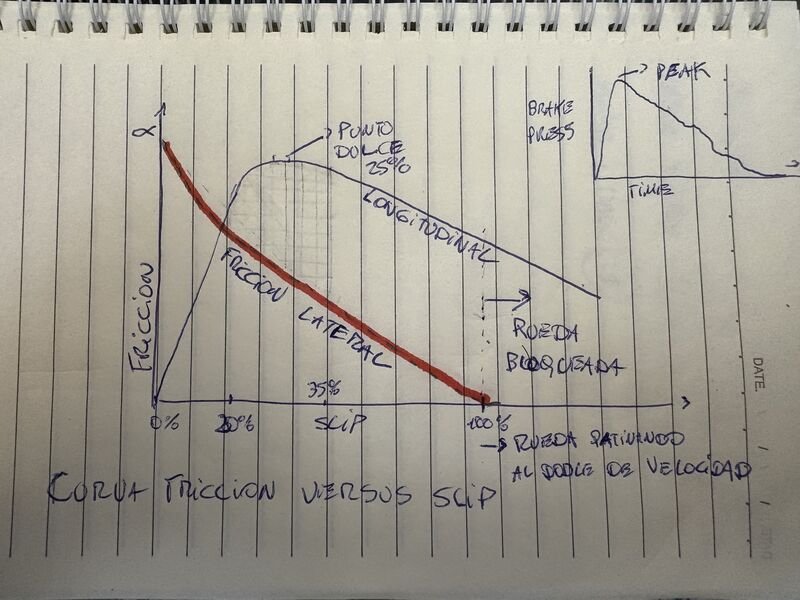 PEAK
BRAKE
PRESS
TIME
PUNTO
DOLCE
25%
LONGITUDINAL
FRICCION
FRICCION LATERAL
RUEDA
BLOQUEADA
35%
0%
20%
SLIP
100%
RUEDA PATINANDO
AL DOBLE DE VELOCIDAD
CURVA FRICCION VERSUS SLIP
DATE.